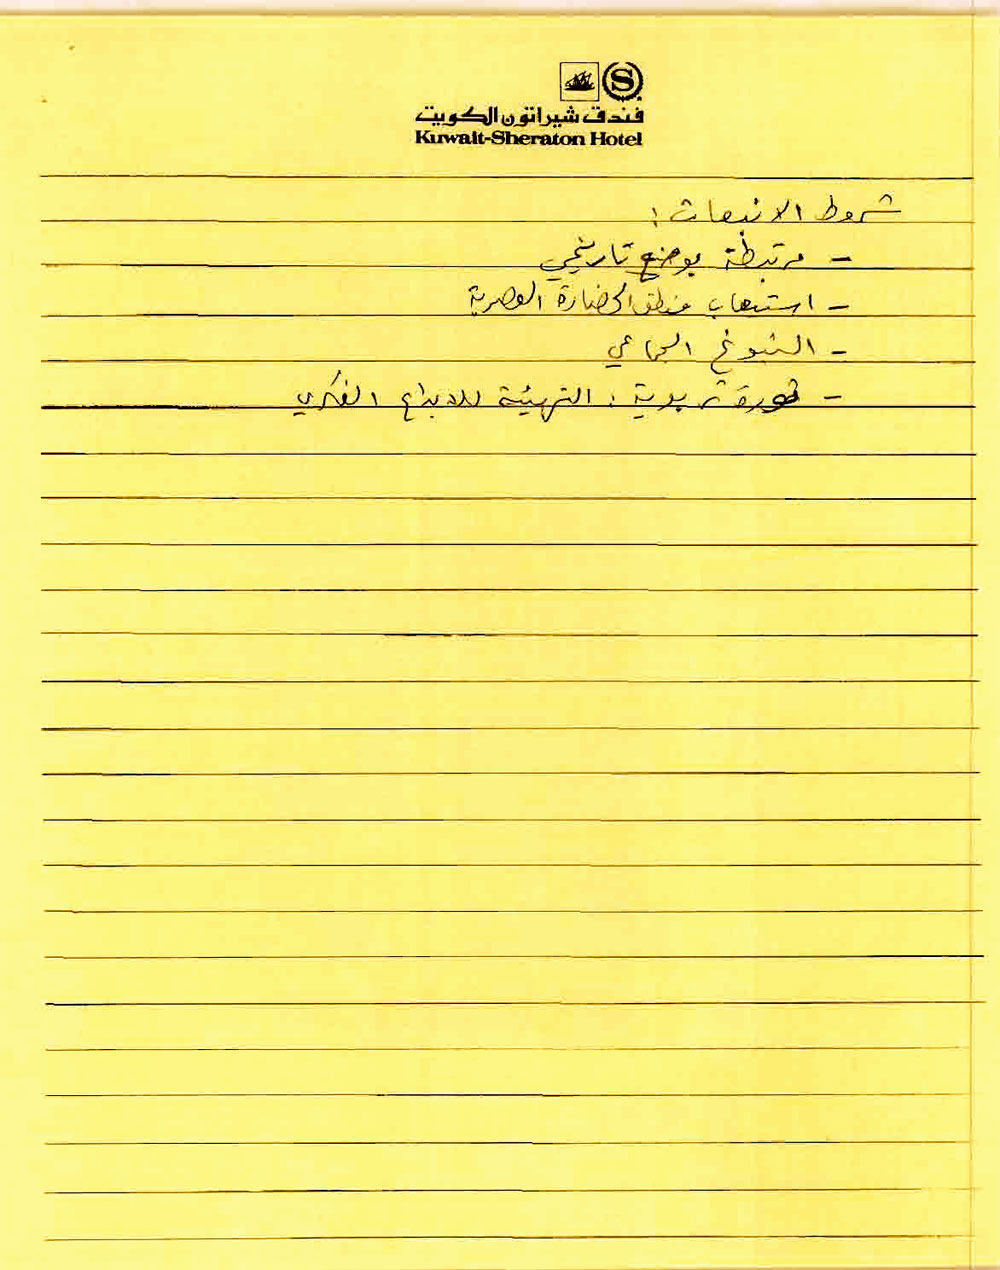 فندق شيراتون الكويت
Kuwait-Sheraton Hotel
شروط الانبعاث :
- مرتبطة بوضع تاريخي
- استيعاب منطق الحضارة العصرية
- النبوغ الجماعي
- ثورة تربوية : التهيئة للابداع الفكري